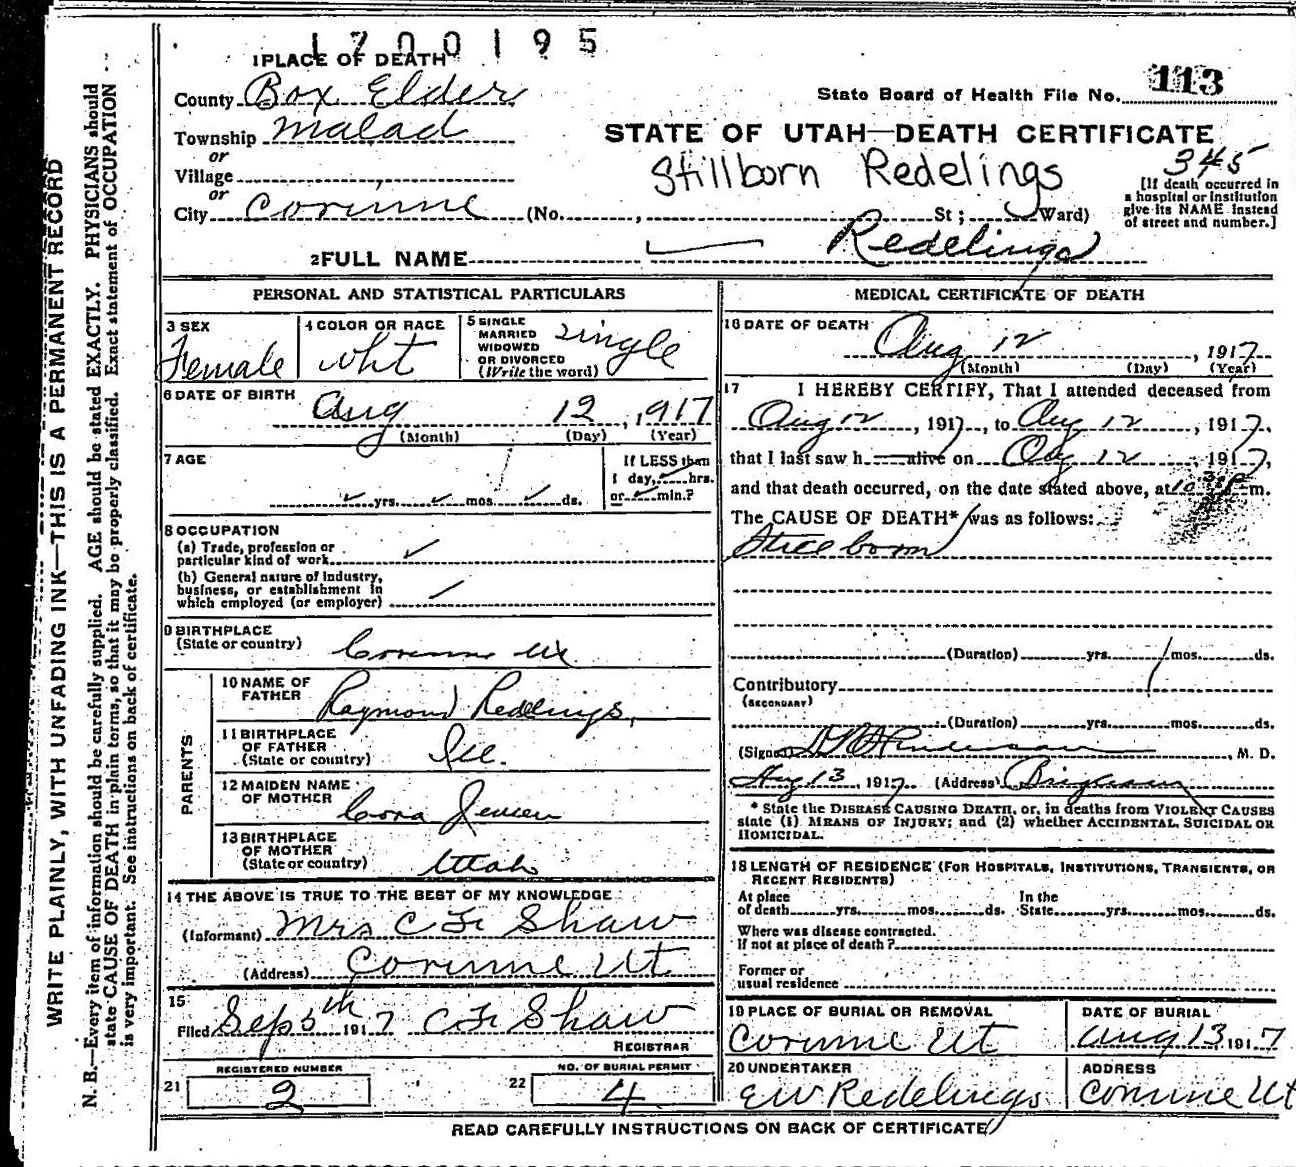 1700195
1 PLACE OF DEATH
County Box Elder
State Board of Health File No. 113
Township Malad
STATE OF UTAH—DEATH CERTIFICATE
or
Village
Stillborn Redelings
345
or
City Corinne (No. , St; Ward)
[If death occurred in
a hospital or institution
give its NAME instead
of street and number.]
2 FULL NAME Redelings
PERSONAL AND STATISTICAL PARTICULARS
3 SEX
Female
4 COLOR OR RACE
Wht
5 SINGLE
MARRIED
WIDOWED
OR DIVORCED
(Write the word)
Single
6 DATE OF BIRTH
Aug 12, 1917
(Month) (Day) (Year)
7 AGE
yrs. mos. ds.
If LESS than
1 day, hrs.
or min.?
8 OCCUPATION
(a) Trade, profession or
particular kind of work
(b) General nature of industry,
business, or establishment in
which employed (or employer)
9 BIRTHPLACE
(State or country) Corinne Ut
PARENTS
10 NAME OF
FATHER Raymond Redelings,
11 BIRTHPLACE
OF FATHER
(State or country) Ill.
12 MAIDEN NAME
OF MOTHER Cora Jensen
13 BIRTHPLACE
OF MOTHER
(State or country) Utah
14 THE ABOVE IS TRUE TO THE BEST OF MY KNOWLEDGE
(Informant) Mrs C F Shaw
(Address) Corinne Ut
15
Filed Sep 5th 1917 C F Shaw
REGISTRAR
21 REGISTERED NUMBER
2
22 NO. OF BURIAL PERMIT
4
MEDICAL CERTIFICATE OF DEATH
16 DATE OF DEATH
Aug 12, 1917
(Month) (Day) (Year)
17 I HEREBY CERTIFY, That I attended deceased from
Aug 12, 1917, to Aug 12, 1917,
that I last saw h alive on Aug 12, 1917,
and that death occurred, on the date stated above, at 10 m.
The CAUSE OF DEATH* was as follows:
Stillborn
(Duration) yrs. mos. ds.
Contributory
(SECONDARY)
(Duration) yrs. mos. ds.
(Signed) M. D.
Aug 13, 1917 (Address) Brigham
* State the DISEASE CAUSING DEATH, or, in deaths from VIOLENT CAUSES
state (1) MEANS OF INJURY; and (2) whether ACCIDENTAL, SUICIDAL OR
HOMICIDAL.
18 LENGTH OF RESIDENCE (FOR HOSPITALS, INSTITUTIONS, TRANSIENTS, OR
RECENT RESIDENTS)
At place
of death yrs. mos. ds.
In the
State yrs. mos. ds.
Where was disease contracted.
If not at place of death?
Former or
usual residence
19 PLACE OF BURIAL OR REMOVAL
Corinne Ut
DATE OF BURIAL
Aug 13, 1917
20 UNDERTAKER
E W Redelings
ADDRESS
Corinne Ut
READ CAREFULLY INSTRUCTIONS ON BACK OF CERTIFICATE
WRITE PLAINLY, WITH UNFADING INK—THIS IS A PERMANENT RECORD
N. B.—Every item of information should be carefully supplied. AGE should be stated EXACTLY. PHYSICIANS should
state CAUSE OF DEATH in plain terms, so that it may be properly classified. Exact statement of OCCUPATION
is very important. See instructions on back of certificate.